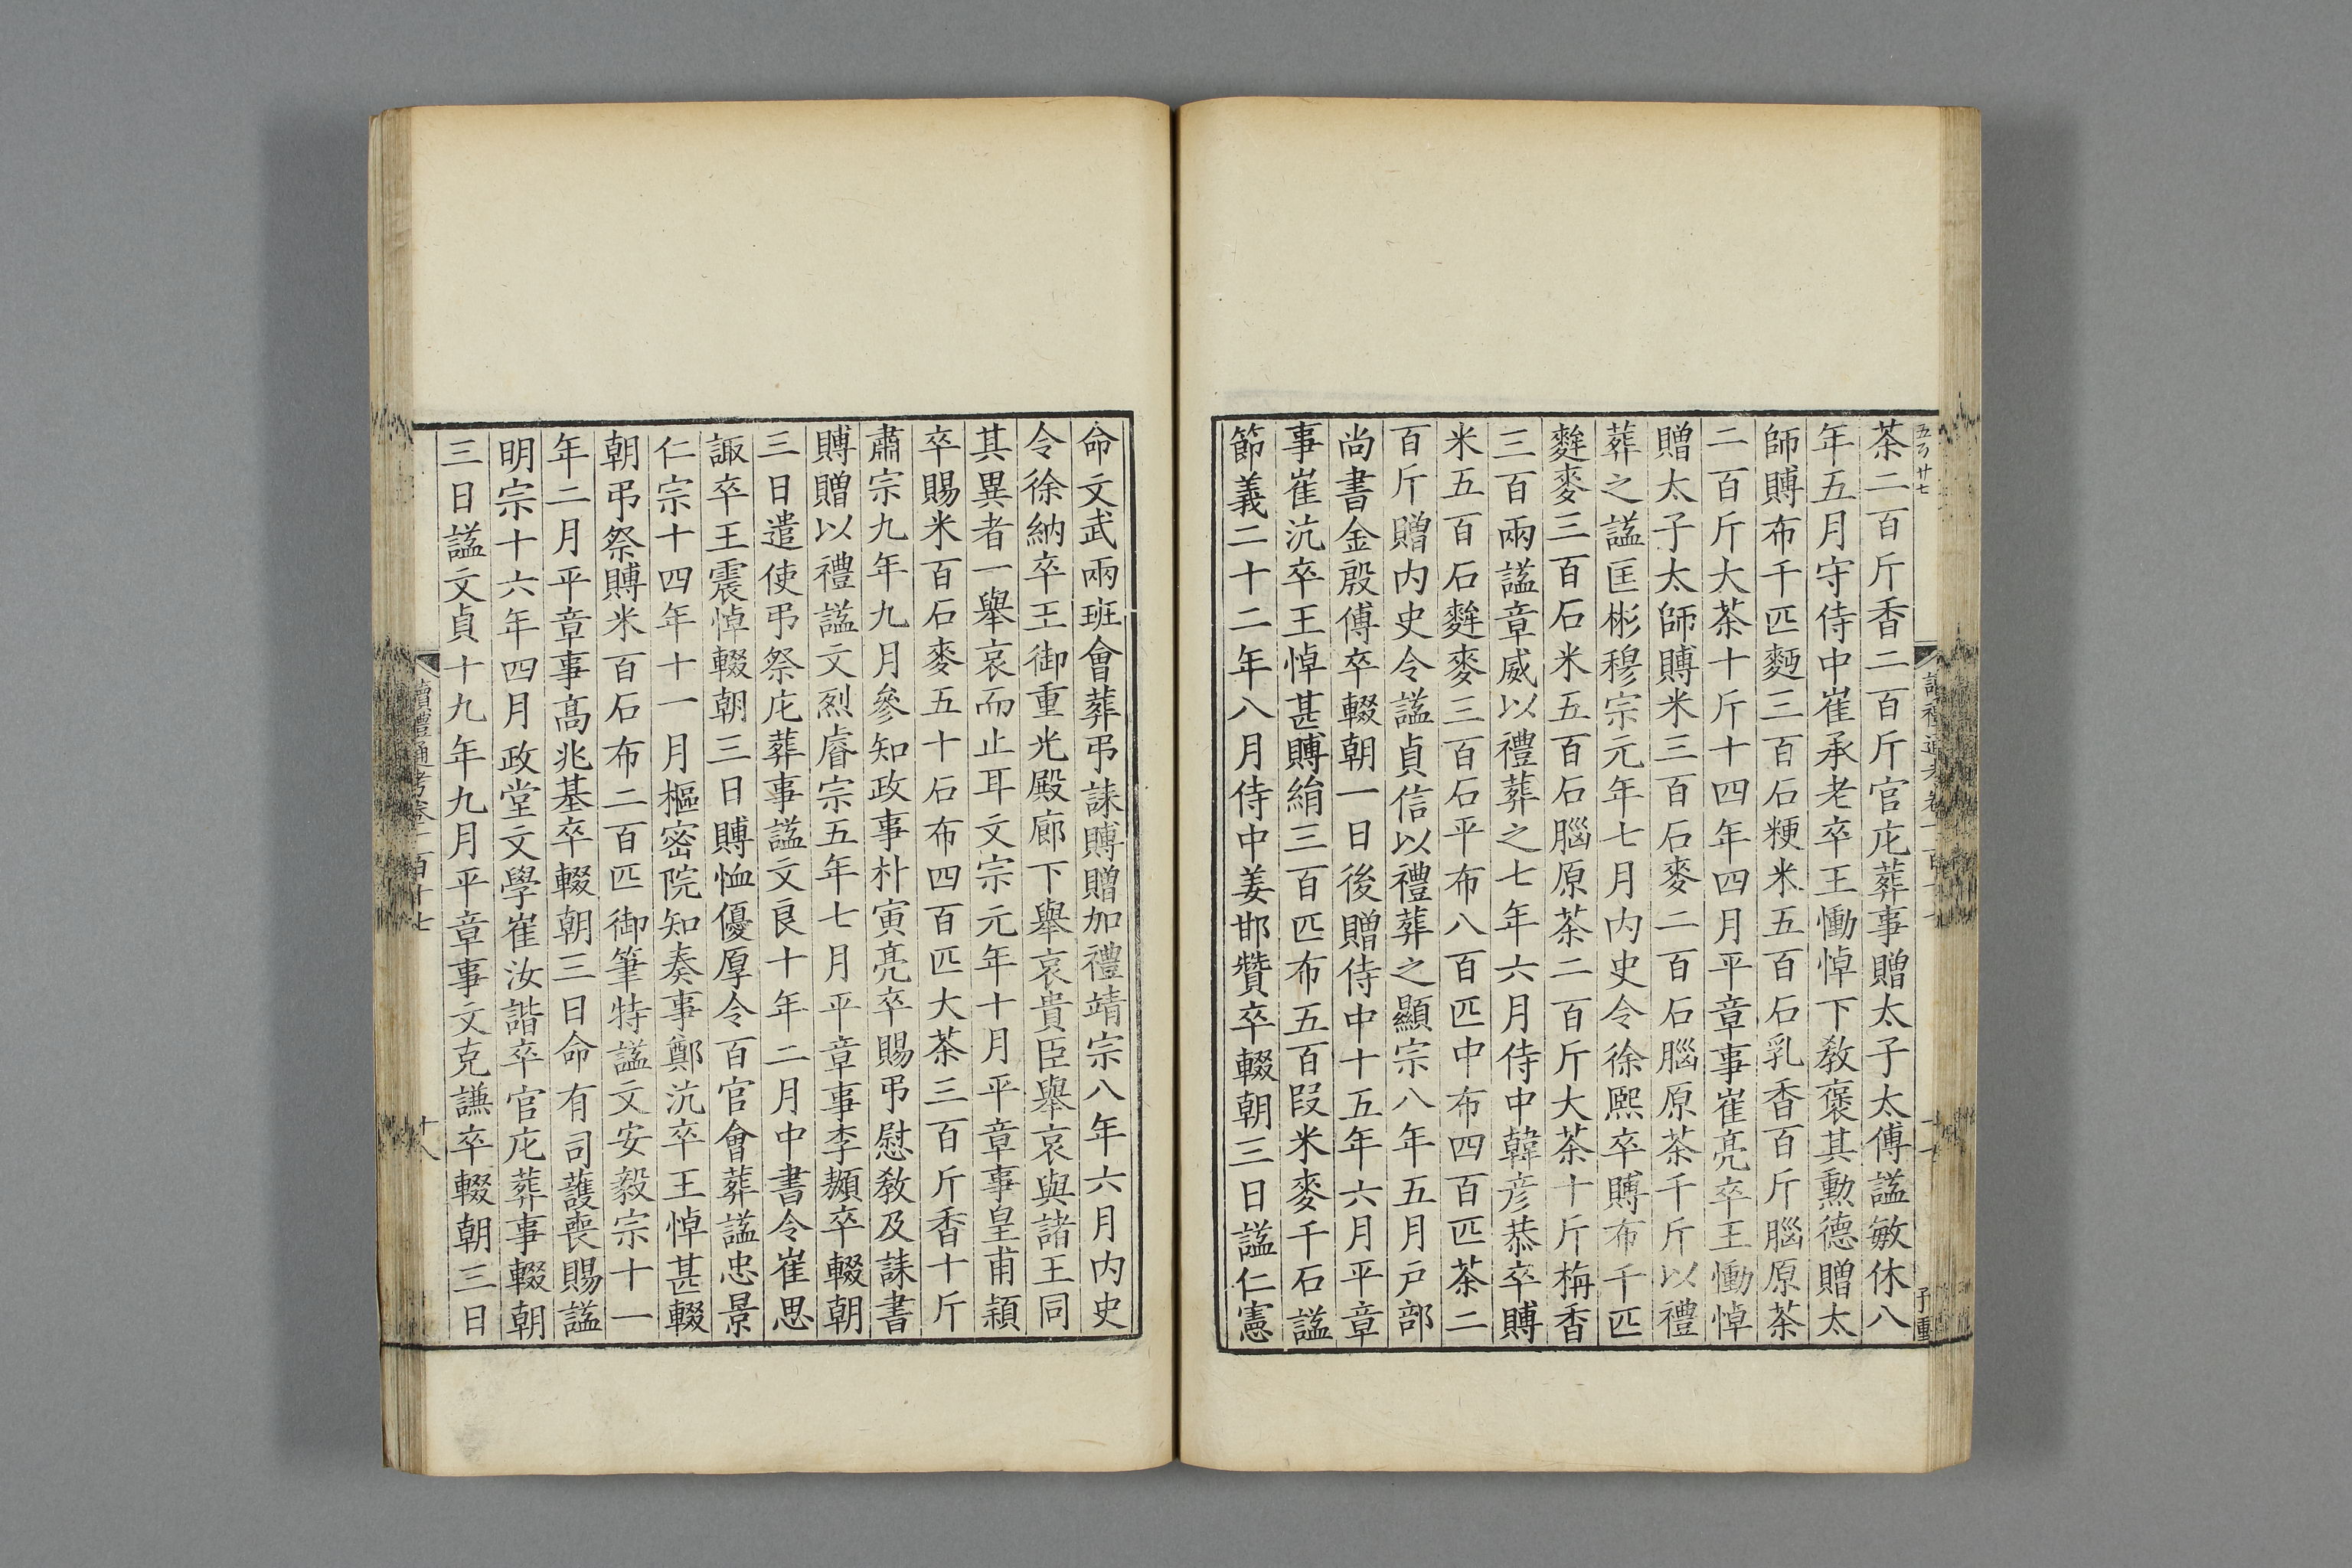 茶二百斤香二百斤官庀葬事贈太子太傅諡敏休八
年五月守侍中崔承老卒王慟悼下教褒其勳德贈太
師賻布千匹麪三百石粳米五百石乳香百斤腦原茶
二百斤大茶十斤十四年四月平章事崔亮卒王慟悼
贈太子太師賻米三百石麥二百石腦原茶千斤以禮
葬之諡匡彬穆宗元年七月內史令徐熙卒賻布千匹
麰麥三百石米五百石腦原茶二百斤大茶十斤栴香
三百兩諡章威以禮葬之七年六月侍中韓彦恭卒賻
米五百石麰麥三百石平布八百匹中布四百匹茶二
百斤贈內史令諡貞信以禮葬之顯宗八年五月戸部
尚書金殷傅卒輟朝一日後贈侍中十五年六月平章
事崔沆卒王悼甚賻絹三百匹布五百段米麥千石諡
節義二十二年八月侍中姜邯贊卒輟朝三日諡仁憲
命文武兩班會葬弔誄賻贈加禮靖宗八年六月內史
令徐納卒王御重光殿廊下舉哀貴臣舉哀與諸王同
其異者一舉哀而止耳文宗元年十月平章事皇甫穎
卒賜米百石麥五十石布四百匹大茶三百斤香十斤
肅宗九年九月參知政事朴寅亮卒賜弔慰敎及誄書
賻贈以禮諡文烈睿宗五年七月平章事李䫨卒輟朝
三日遣使弔祭庀葬事諡文良十年二月中書令崔思
諏卒王震悼輟朝三日賻恤優厚令百官會葬諡忠景
仁宗十四年十一月樞密院知奏事鄭沆卒王悼甚輟
朝弔祭賻米百石布二百匹御筆特諡文安毅宗十一
年二月平章事高兆基卒輟朝三日命有司護喪賜諡
明宗十六年四月政堂文學崔汝諧卒官庀葬事輟朝
三日諡文貞十九年九月平章事文克謙卒輟朝三日
讀禮通考卷一百十七
十八